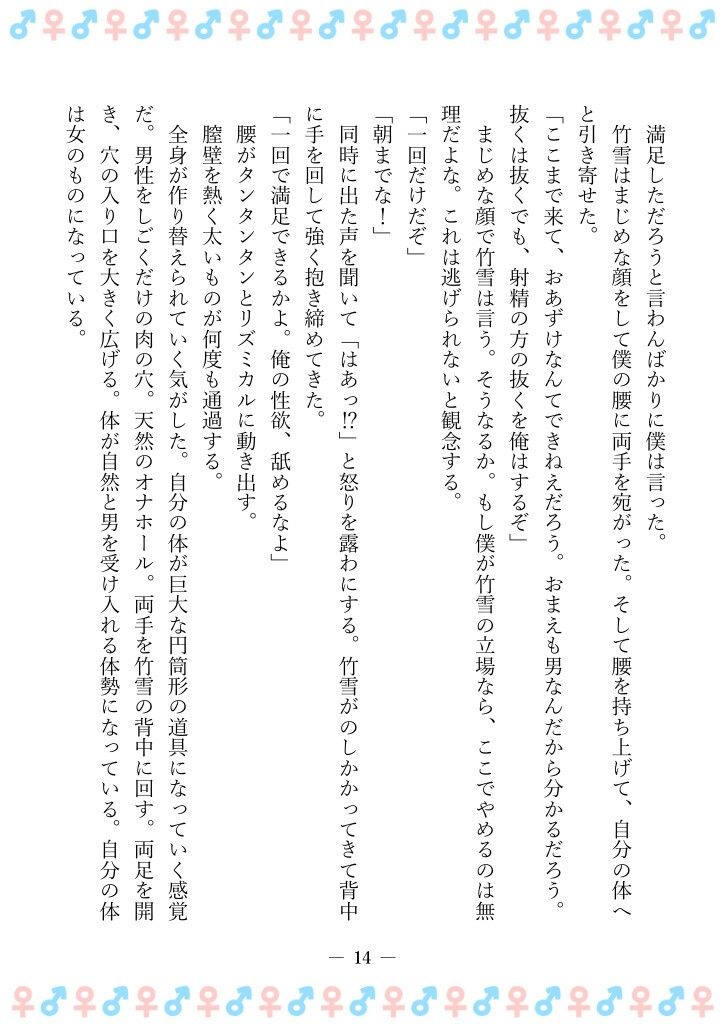 満足しただろうと言わんばかりに僕は言った。
竹雪はまじめな顔をして僕の腰に両手を宛がった。そして腰を持ち上げて、自分の体へ
と引き寄せた。
「ここまで来て、おあずけなんてできねえだろう。おまえも男なんだから分かるだろう。
抜くは抜くでも、射精の方の抜くを俺はするぞ」
まじめな顔で竹雪は言う。そうなるか。もし僕が竹雪の立場なら、ここでやめるのは無
理だよな。これは逃げられないと観念する。
「一回だけだぞ」
「朝までな！」
同時に出た声を聞いて「はあっ⁉」と怒りを露わにする。竹雪がのしかかってきて背中
に手を回して強く抱き締めてきた。
「一回で満足できるかよ。俺の性欲、舐めるなよ」
腰がタンタンタンとリズミカルに動き出す。
膣壁を熱く太いものが何度も通過する。
全身が作り替えられていく気がした。自分の体が巨大な円筒形の道具になっていく感覚
だ。男性をしごくだけの肉の穴。天然のオナホール。両手を竹雪の背中に回す。両足を開
き、穴の入り口を大きく広げる。体が自然と男を受け入れる体勢になっている。自分の体
は女のものになっている。
― 14 ―